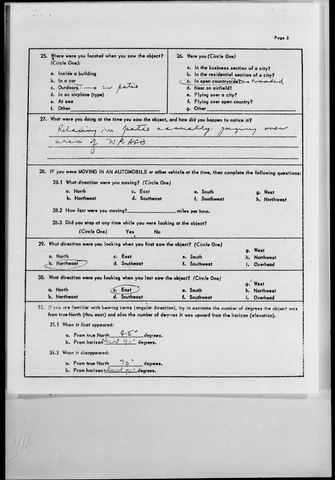 Page 3
25. Where were you located when you saw the object?
(Circle One):
a. Inside a building
b. In a car
c. Outdoors — in patio
d. In an airplane (type)
e. At sea
f. Other
26. Were you (Circle One)
a. In the business section of a city?
b. In the residential section of a city?
c. In open countryside? — wooded
d. Near an airfield?
e. Flying over a city?
f. Flying over open country?
g. Other
27. What were you doing at the time you saw the object, and how did you happen to notice it?
Relaxing in patio casually gazing over
area of WPAFB
28. IF you were MOVING IN AN AUTOMOBILE or other vehicle at the time, then complete the following questions:
28.1 What direction were you moving? (Circle One)
a. North c. East e. South g. West
b. Northeast d. Southeast f. Southwest h. Northwest
28.2 How fast were you moving? miles per hour.
28.3 Did you stop at any time while you were looking at the object?
(Circle One) Yes No
29. What direction were you looking when you first saw the object? (Circle One)
a. North c. East e. South g. West
b. Northeast d. Southeast f. Southwest h. Northwest
i. Overhead
30. What direction were you looking when you last saw the object? (Circle One)
a. North c. East e. South g. West
b. Northeast d. Southeast f. Southwest h. Northwest
i. Overhead
31. If you are familiar with bearing terms (angular direction), try to estimate the number of degrees the object was
from true North (thru east) and also the number of degrees it was upward from the horizon (elevation).
31.1 When it first appeared:
a. From true North 45° degrees.
b. From horizon degrees.
31.2 When it disappeared:
a. From true North 90° degrees.
b. From horizon degrees.